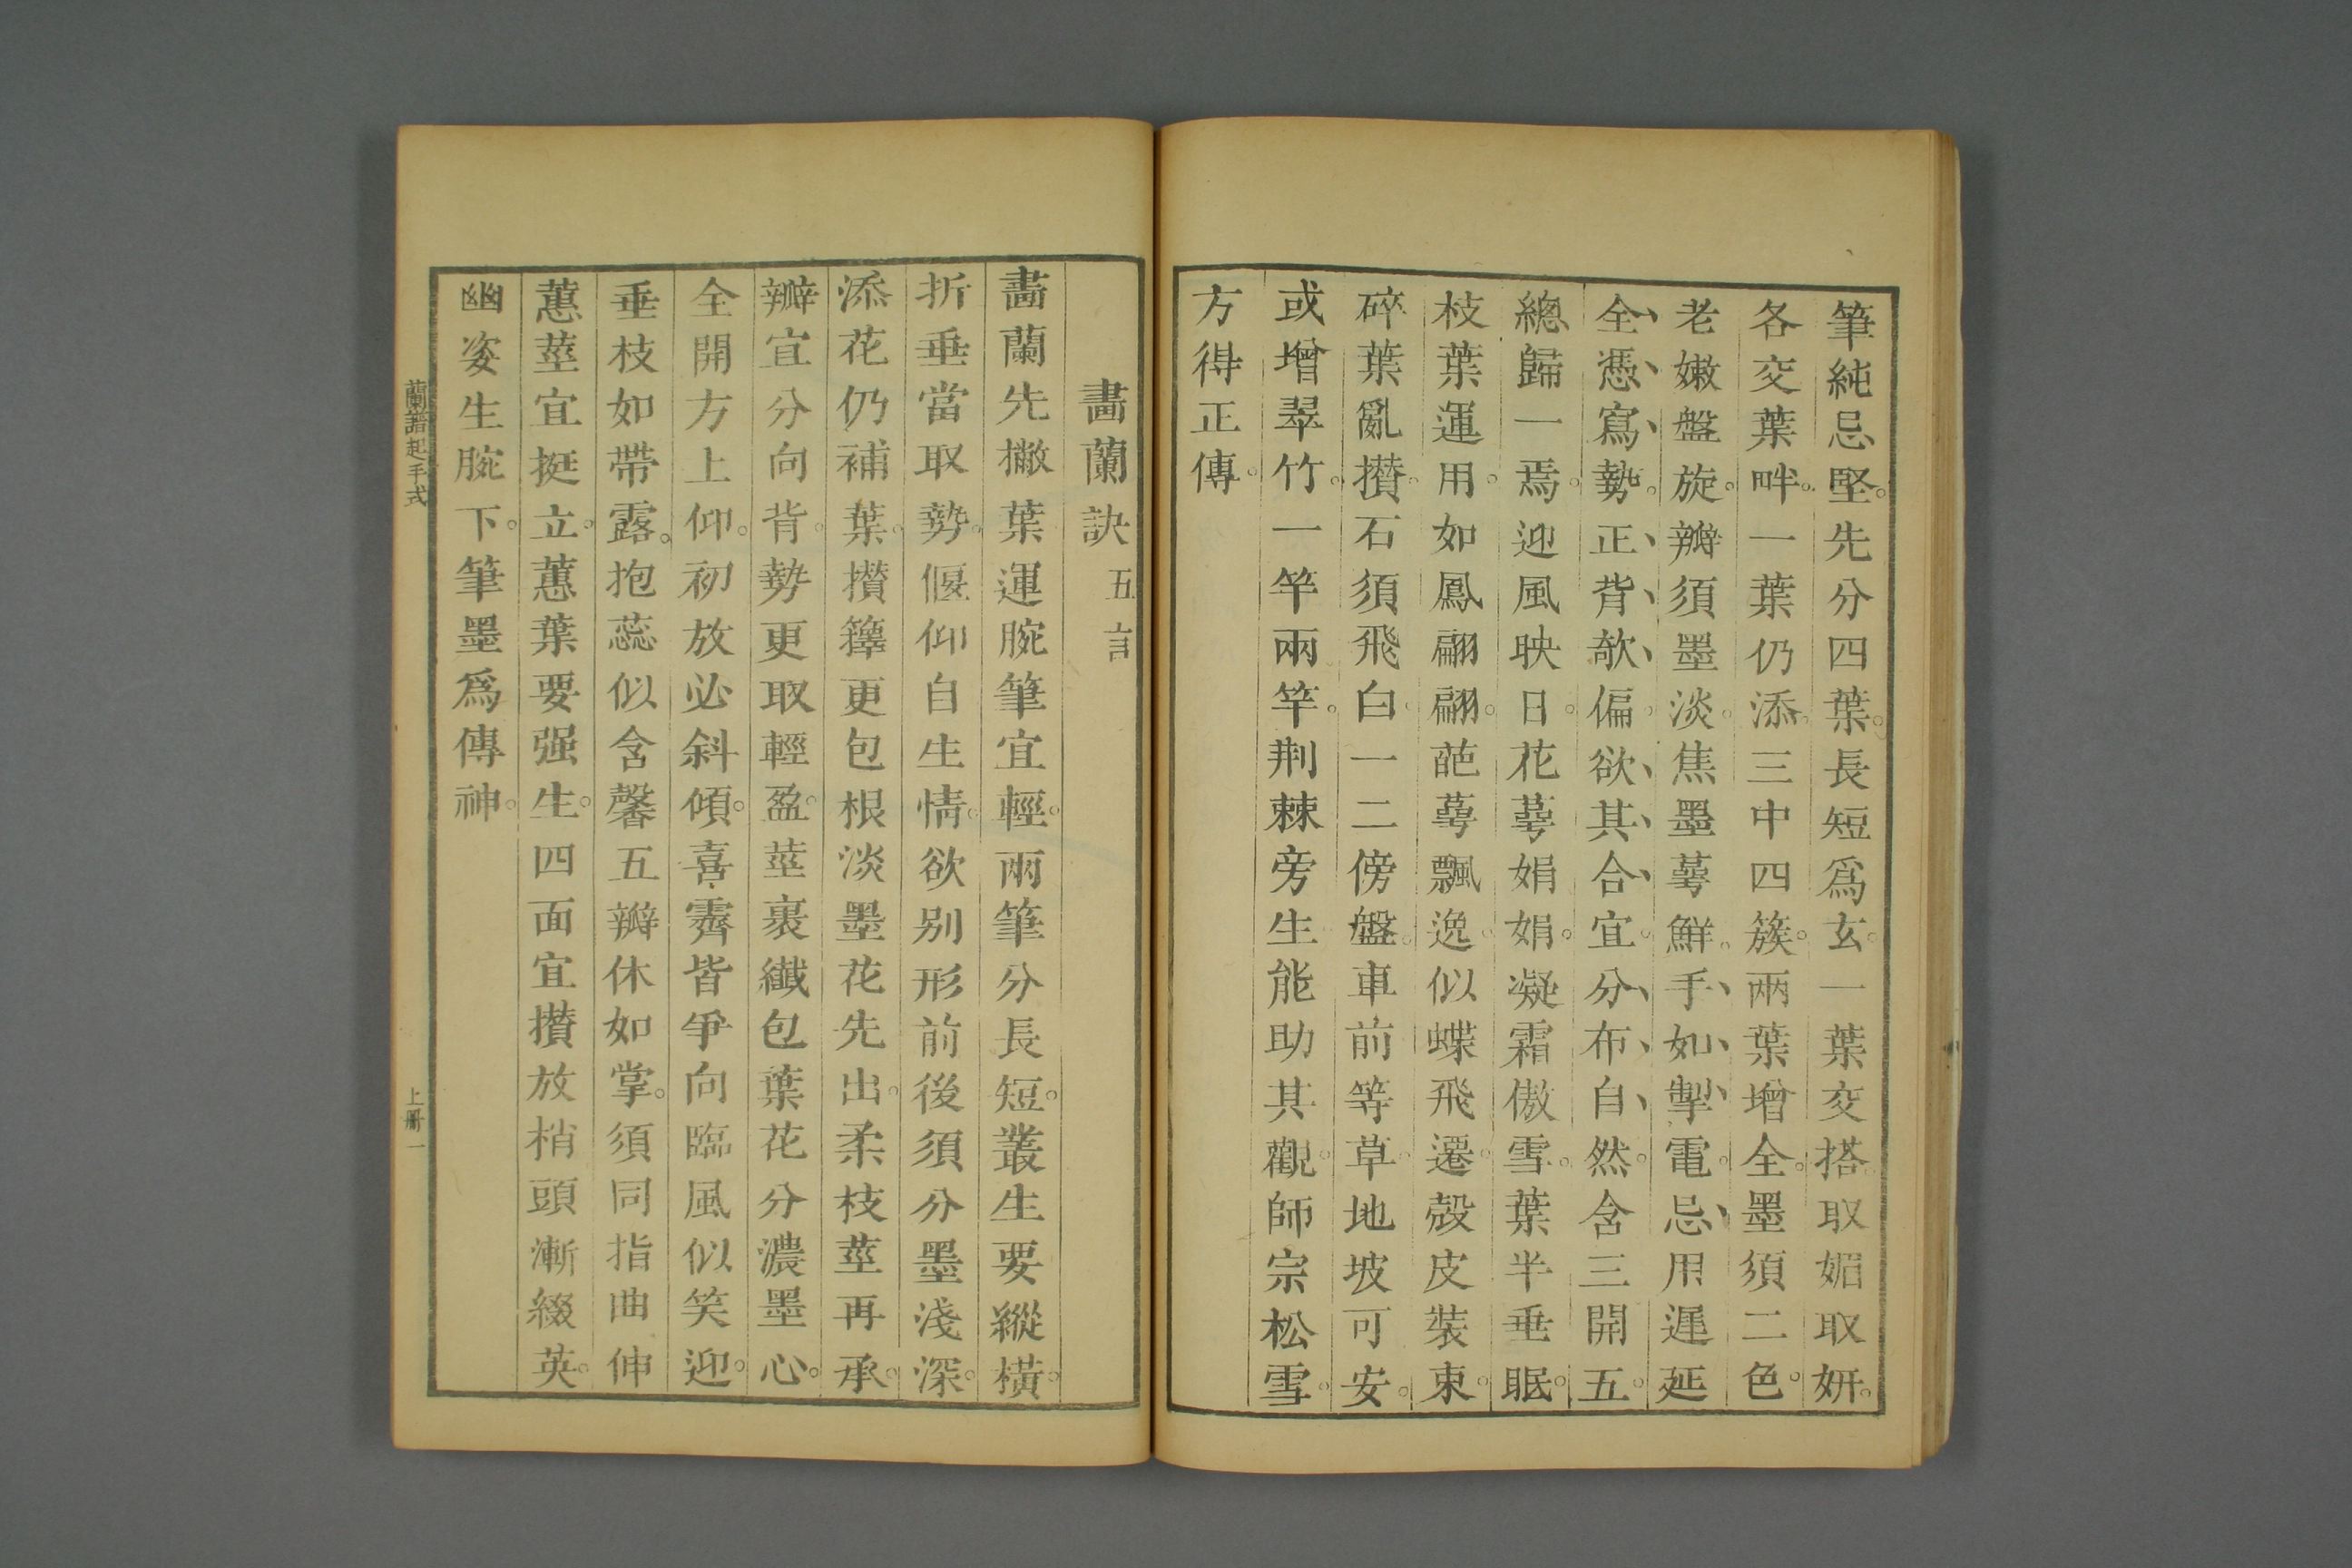 筆純忌堅。先分四葉。長短爲玄。一葉交搭。取媚取妍。
各交葉畔。一葉仍添。三中四簇。兩葉增全。墨須二色。
老嫩盤旋。瓣須墨淡。焦墨萼鮮。手、如、掣、電。忌、用運延
全、憑、寫、勢。正、背、欹、偏。欲、其、合、宜。分、布、自、然。含三開五。
總歸一焉。迎風映日。花萼娟娟。凝霜傲雪。葉半垂眠。
枝葉運用。如鳳翩翩。葩萼飄逸。似蝶飛遷。殼皮裝束。
碎葉亂攢。石須飛白。一二傍盤。車前等草。地坡可安。
或增翠竹。一竿兩竿。荆棘旁生能助其觀。師宗松雪。
方得正傳。
畫蘭訣 五言
畫蘭先撇葉運腕筆宜輕。兩筆分長短。叢生要縱橫。
折垂當取勢。偃仰自生情。欲别形前後須分墨淺深。
添花仍補葉。攢籜更包根淡墨花先出。柔枝莖再承。
瓣宜分向背。勢更取輕盈。莖裹纖包葉花分濃墨心。
全開方上仰。初放必斜傾。喜霽皆爭向臨風似笑迎。
垂枝如帶露。抱蕊似含馨五瓣休如掌。須同指曲伸
蕙莖宜挺立。蕙葉要强生。四面宜攢放梢頭漸綴英。
幽姿生腕下。筆墨爲傳神。
蘭譜起手式
上册一